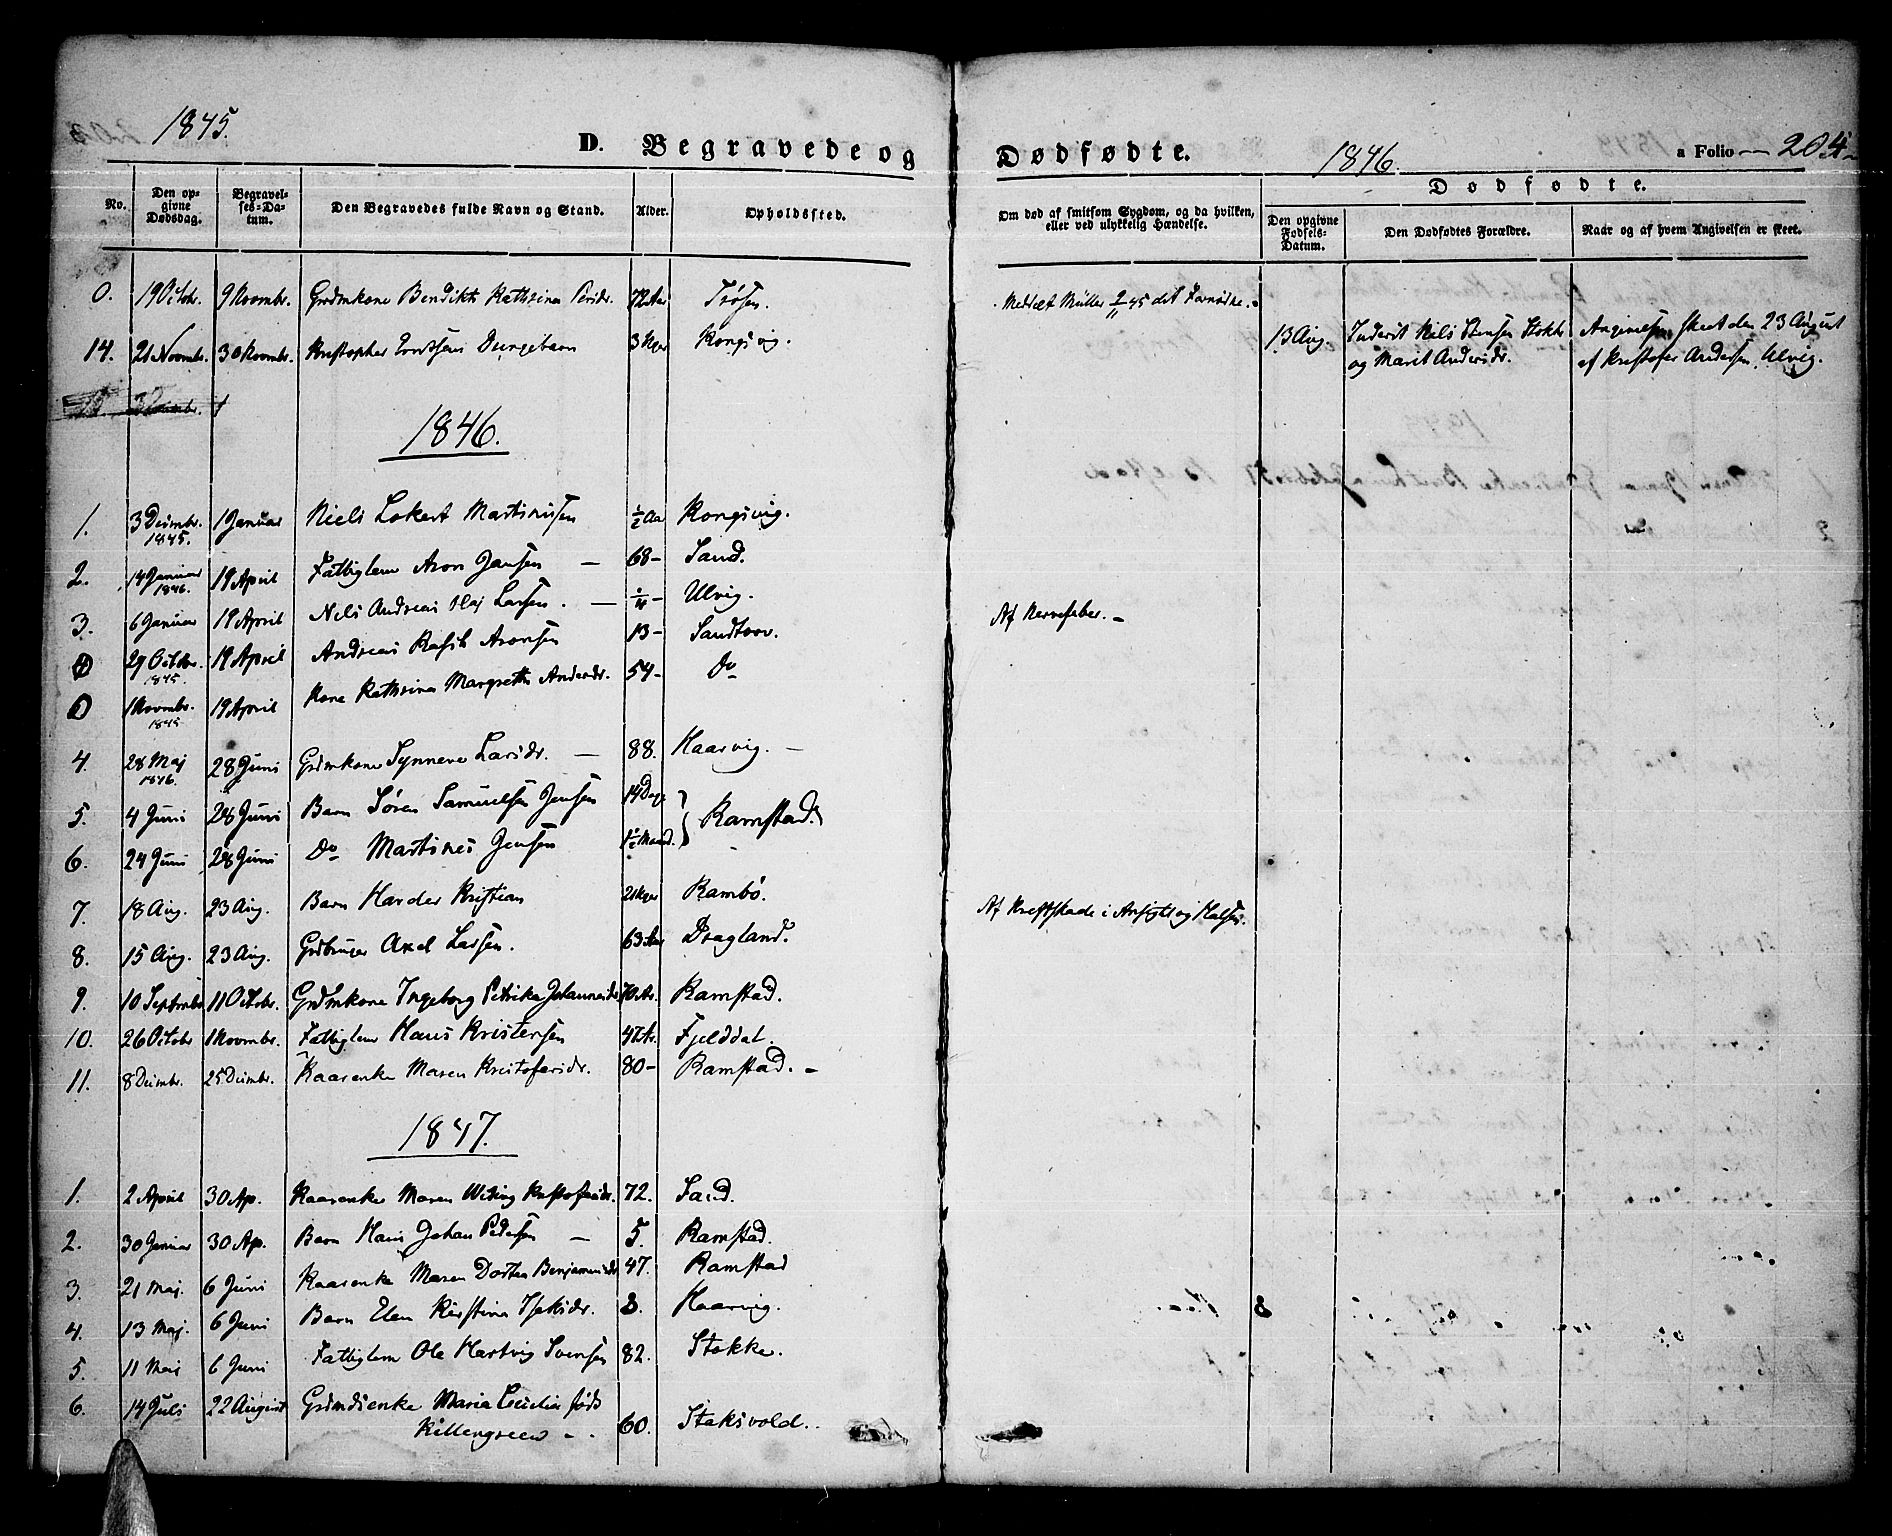 1845.
D. Begravede og Dødfødte.
1846.
a Folio 204
No.
Den opgivne Dødsdag.
Begravelses-Datum.
Den Begravedes fulde Navn og Stand.
Alder.
Opholdssted.
Om død af smitsom Sygdom, og da hvilken, eller ved ulykkelig Hændelse.
Dødfødte.
Den opgivne Fødsels-Datum.
Den Dødfødtes Forældre.
Naar og af hvem Angivelsen er skeet.
0. 19 Octobr. 9 Novmbr. Grdmkone Bendikte Kathrina Persdr. 72 Aar Trøsen. Meddelt Müller
14. 21 Novmbr. 30 Novmbr. Kristopher 3 Uger Kongsvig.
13 Aug. Inderst Nils Stensen Stokke Angivelsen skeet den 23 August
og Marit Andersdr. af Kristofer Andersen, Ulvig.
1846.
1. 3 Decmbr. 1845. 1 Januar Niels Lokert Martinusen ½ Aar Kongsvig.
2. 14 Januar 1846. 19 April Fattiglem Aron Jensen — 68 – Sand.
3. 6 Januar 19 April Nils Andreas Larsen. — ¼ – Ulvig.
29 Octobr. 1845. 19 April Andreas Aronsen 13 – Sandtorv. Af Nervefeber. –
1 Novmbr. 1845 19 April Kone Kathrina Margrethe Andersdr. 54 – Do
4. 28 Maj 1846. 28 Juni Grdmkone Synneve Larsdr. — 88. Haarvig. –
5. 4 Juni 28 Juni Barn Søren Samuelsen Jensen 14 Dage Ramstad.
6. 24 Juni 28 Juni Do Martines Jensen 1½ Maand.
7. 18 Aug. 23 Aug. Barn Harder Kristian 2 Uger Rambø.
8. 15 Aug. 23 Aug. Grdbruger Axel Larsen. 63 Aar Dragland. Af Kreftskade i Ansigt og Halsen.
9. 10 Septmbr 11 Octobr. Grdmkone Ingeborg Petrika Johannesdr 70 Ar. Ramstad.
10. 26 Octobr 1 Novmbr. Fattiglem Hans Kristensen 47 Ar. Fjelddal.
11. 8 Decmbr. 25 Decmbr. Kaarenke Maren Kristofersdr. 80 – Ramstad. –
1847.
1. 2 April 30 Ap. Kaarenke Maren Kristofersdr. 72. Sand.
2. 30 Januar 30 Ap. Barn Hans Johan Pedersen — 5. Ramstad.
3. 21 Maj. 6 Juni Kaarenke Maren Dortea Benjaminsdr 47. Ramstad
4. 13 Maj. 6 Juni Barn Elen Kirstina Isaksdr. 8. Haarvig.
5. 11 Maj 6 Juni Fattiglem Ole Hartvig Svensen 82. Stokke.
6. 14 Juli 22 August Grdmdienke Maria Cecilia føds
Killengreen – . 60. Staksvold..